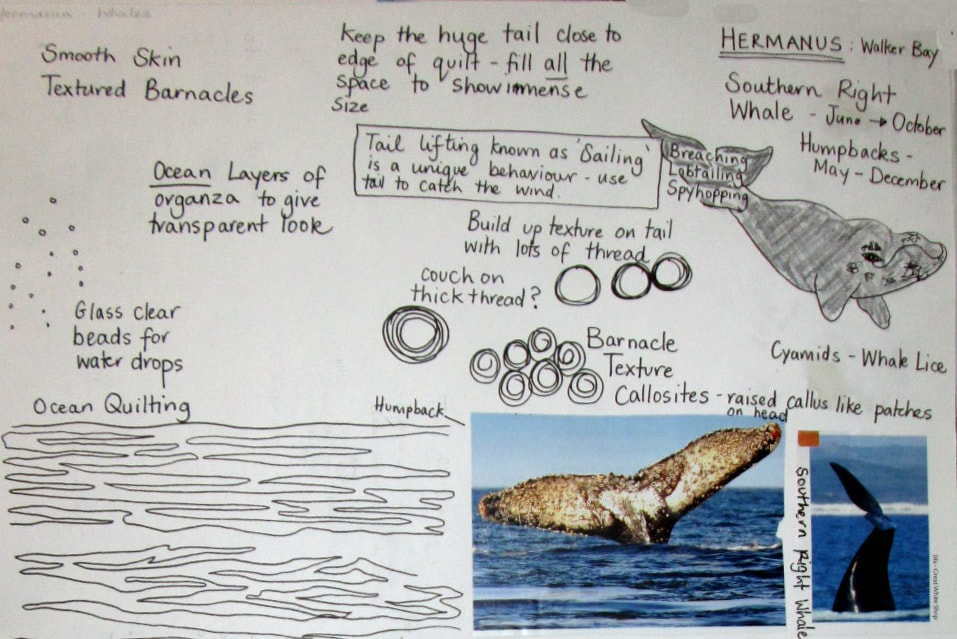 Hermanus - Whales
Smooth Skin
Textured Barnacles
Keep the huge tail close to
edge of quilt - fill all the
space to show immense
size
HERMANUS : Walker Bay
Southern Right
Whale - June → October
Humpbacks -
May - December
Tail lifting known as 'Sailing'
is a unique behaviour - use
tail to catch the wind.
Breaching
Lobtailing
Spyhopping
Ocean Layers of
organza to give
transparent look
Build up texture on tail
with lots of thread
couch on
thick thread?
Glass clear
beads for
water drops
Barnacle
Texture
Cyamids - Whale Lice
Callosites - raised callus like patches
on head
Ocean Quilting
Humpback
Southern Right Whale